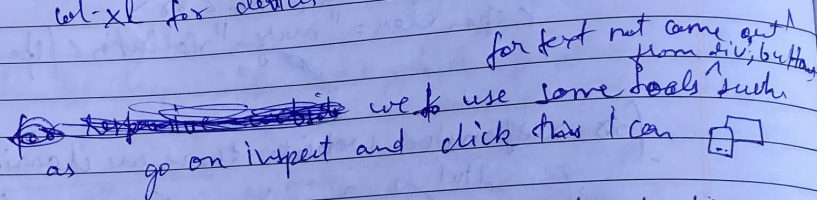 col-xl for
for text not come out
from div, button
we to use some tools such
as go on inspect and click this ican